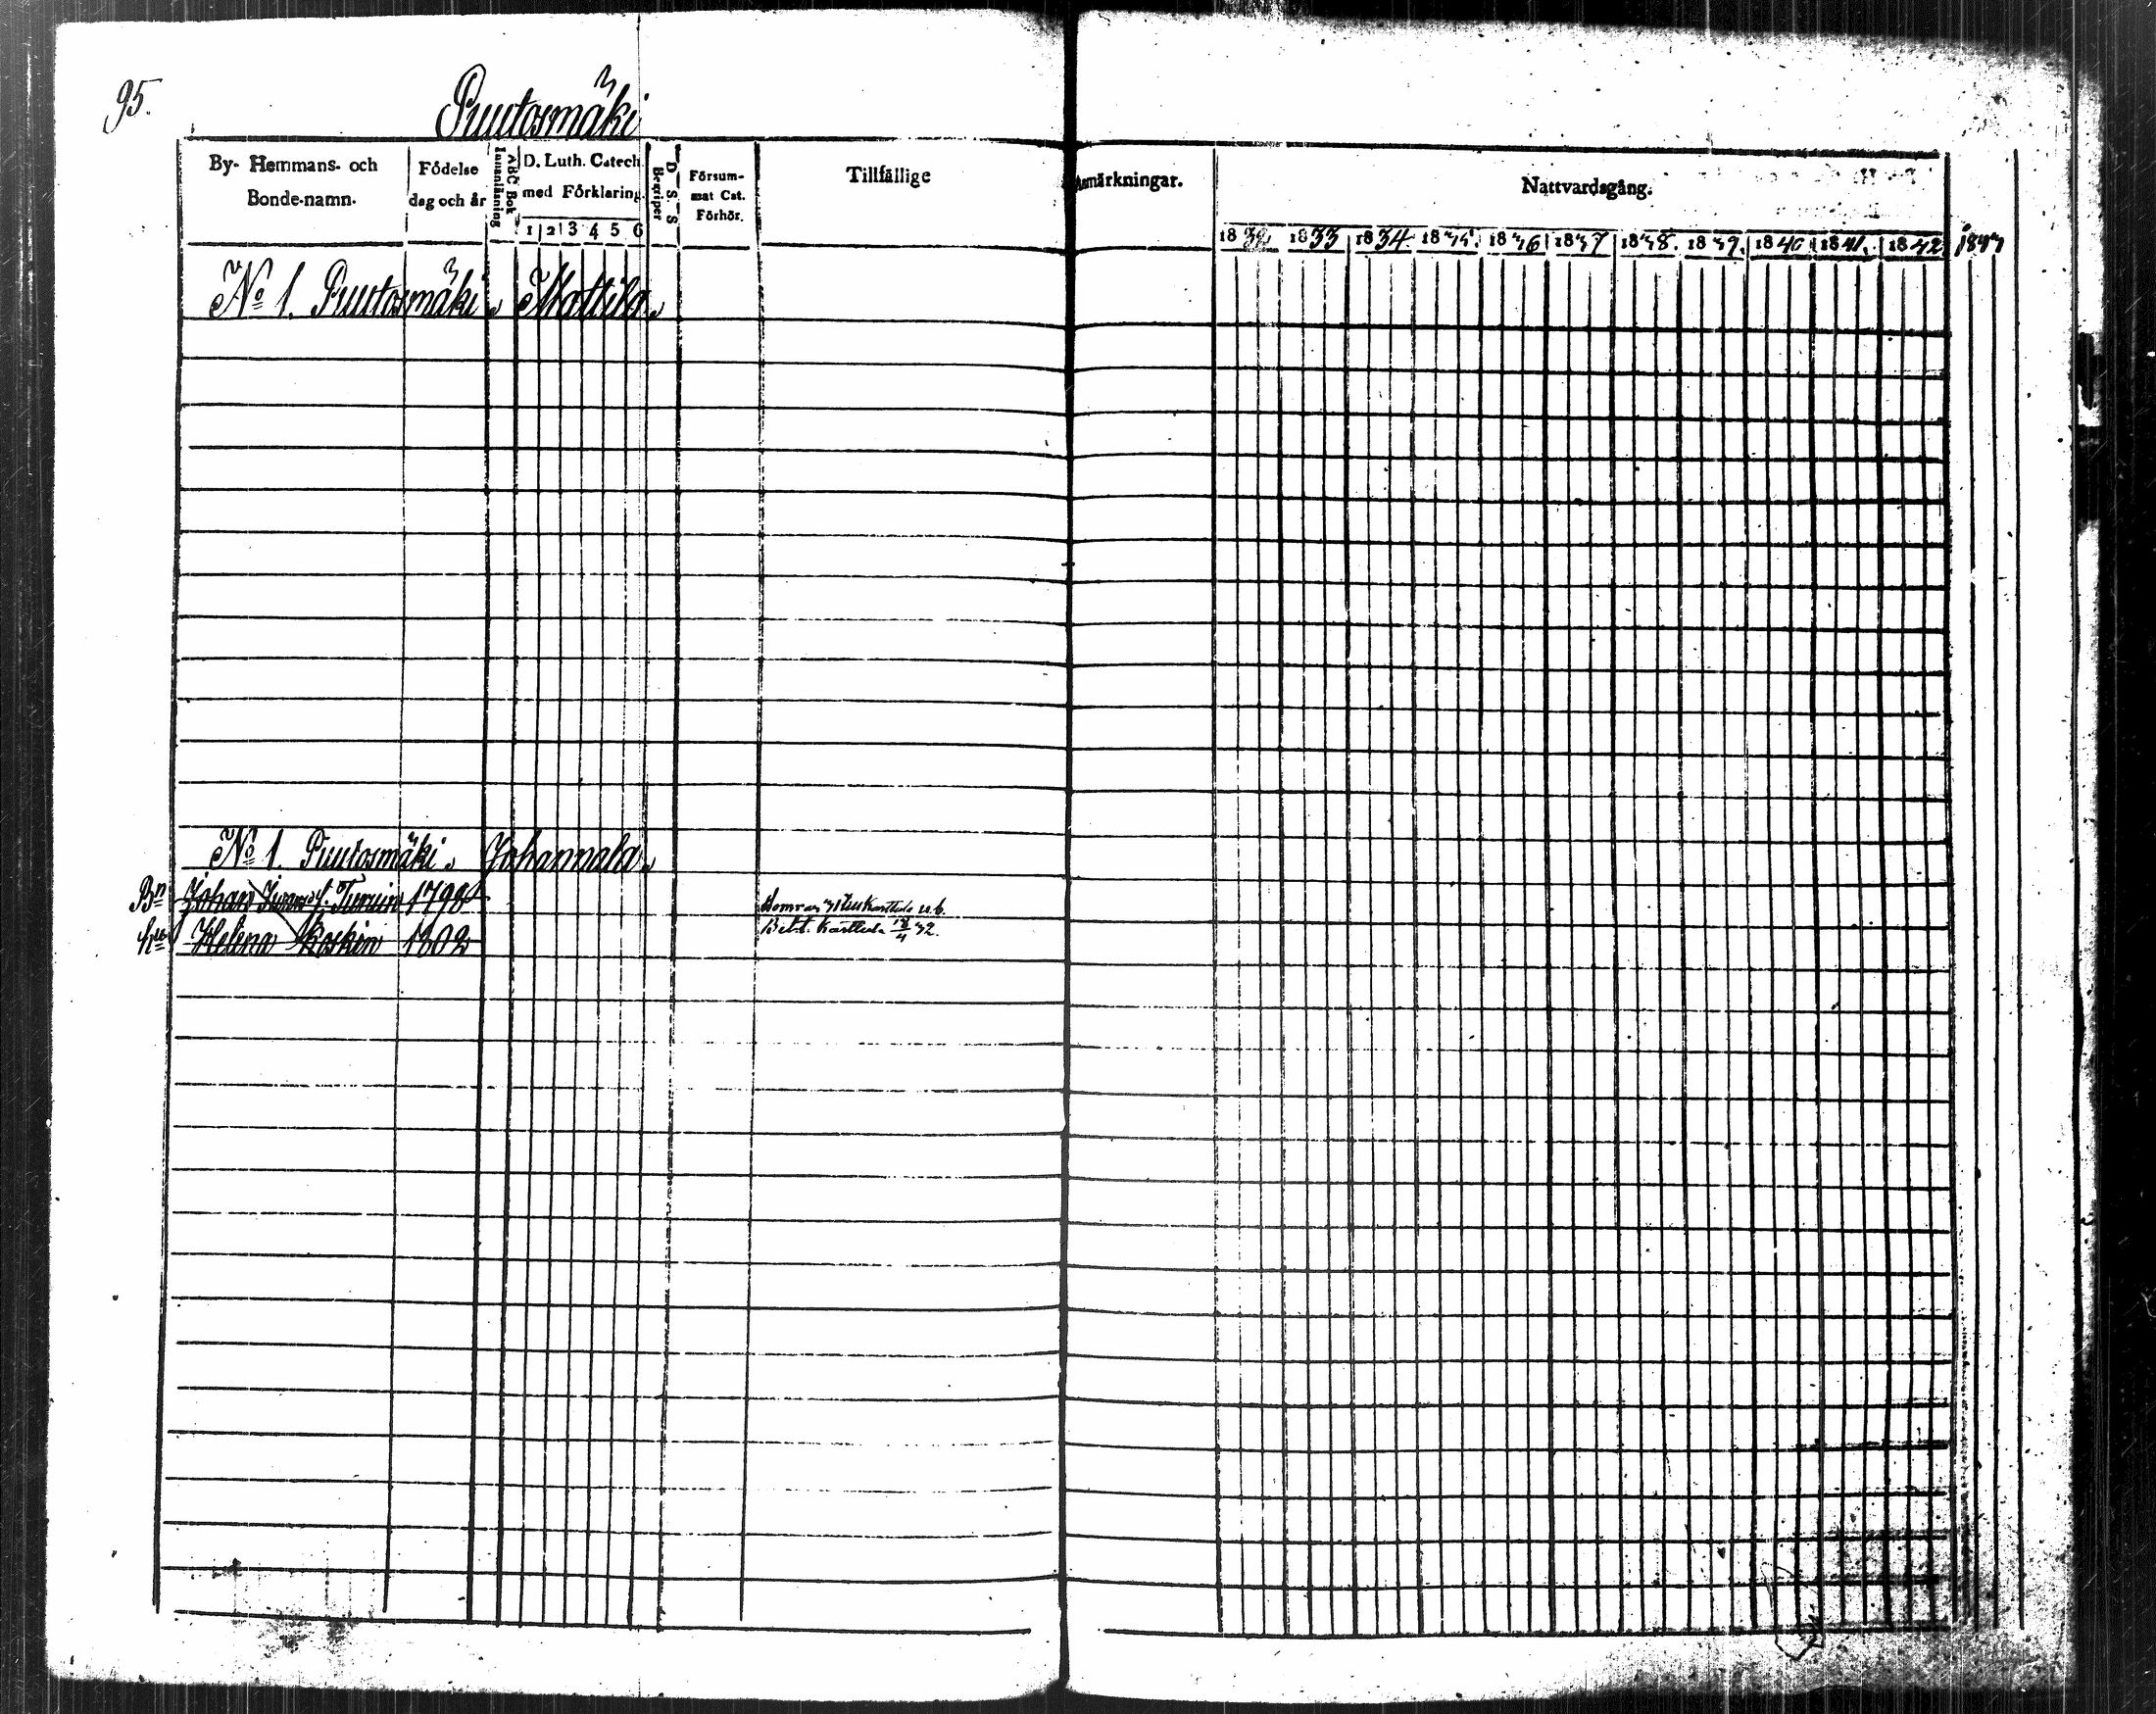 95.
Puutosmäki
By- Hemmans- och Bonde-namn.
Födelse dag och år
Innanläsning
ABC Bok
D. Luth. Catech. med Förklaring.
1 2 3 4 5 6
D. S. S Begriper
Försum-mat Cat. Förhör.
Tillfällige Anmärkningar.
Nattvardsgång.
1832 1833 1834 1835. 1836 1837 1838. 1839. 1840 1841. 1842 1843
No 1. Puutosmäki. Mattila.
No 1. Puutosmäki. Johannala.
Bn Johan Turuin 1798
Hu Helena Koskin 1802
Karttula
Bet. t. Karttula 18/4 32.